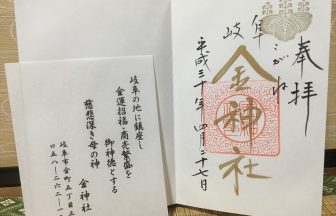 奉拝
こがね
岐阜
金神社
平成三十年 四月二十七日
岐阜の地に鎮座し
金運招福・商売繁盛を
御神徳とする
慈悲深き母の神
金神社
岐阜市金町五丁目
〇五八-二六二-一